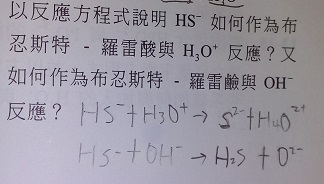 以反應方程式說明 HS⁻ 如何作為布
忍斯特 - 羅雷酸與 H₃O⁺ 反應？又
如何作為布忍斯特 - 羅雷鹼與 OH⁻
反應？ HS⁻+H₃O⁺→ S²⁻+H₄O²⁺
HS⁻+OH⁻→H₂S + O²⁻